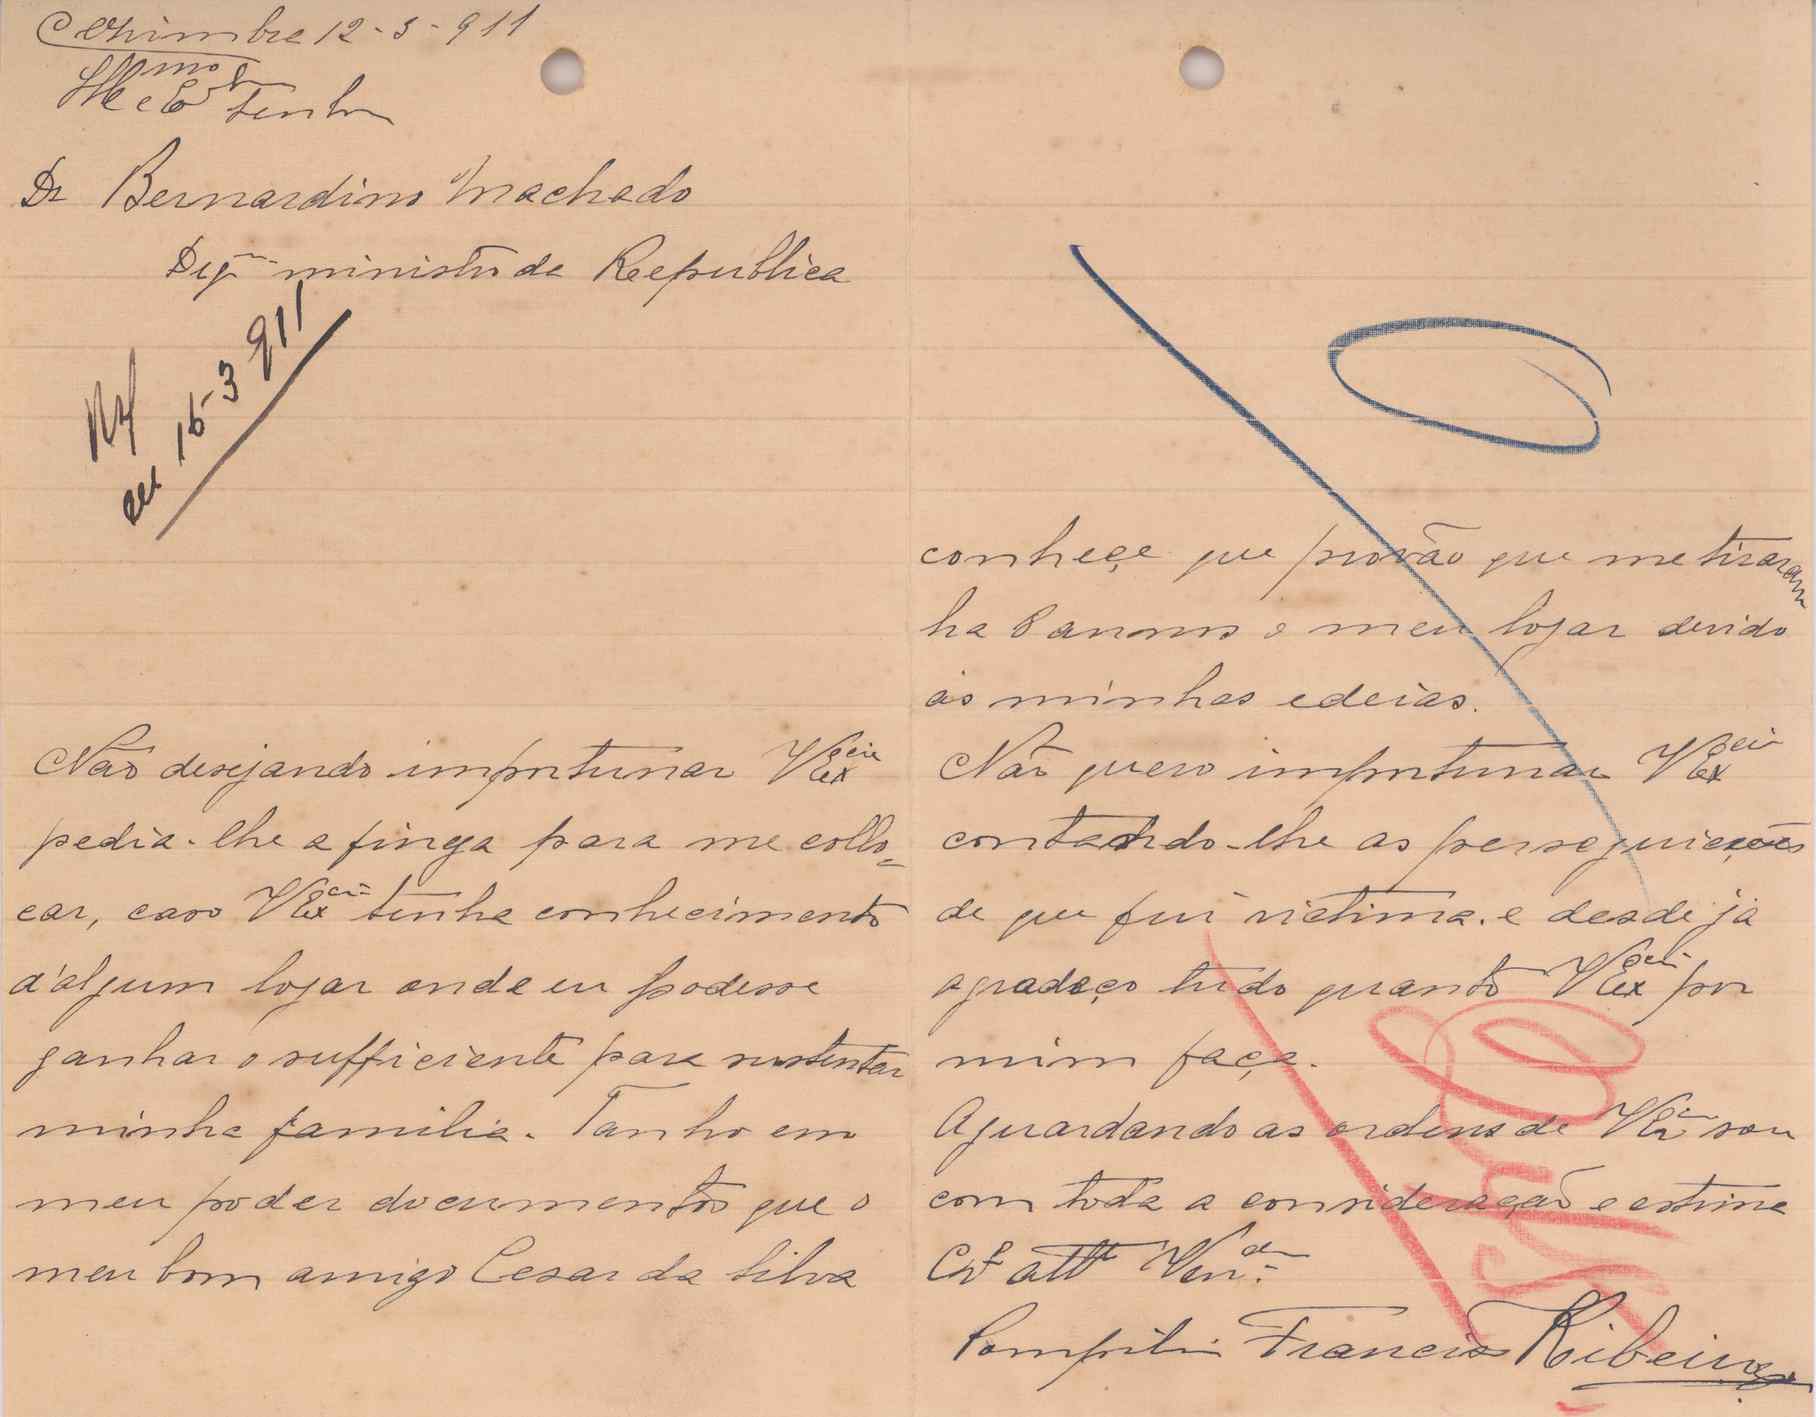 Cezimbra 12-3-911
Illmo e Exmo Senhor
Dr Bernardino Machado
Digmo ministro da Reepublica
16-3-911
Não desejando importunar VExcia
pedia-lhe a fineza para me collo=
car, caso VExcia tenha conhecimento
d'algum logar onde eu podesse
ganhar o sufficiente para sustentar
minha familia. Tanho em
meu poder documentos que o
meu bom amigo Cesar da Silva
conheçe que provão que me tiraram
ha 8 annos o meu logar devido
ás minhas edeias.
Não quero importunar VExcia
contando-lhe as perseguieções
de que fui victima. e desde já
agradeço tudo quanto VExcia por
mim faça.
Aguardando as ordens de VExa sou
com toda a consideração e estima
Cro attto Vendor
Pompilio Francisco Ribeiro